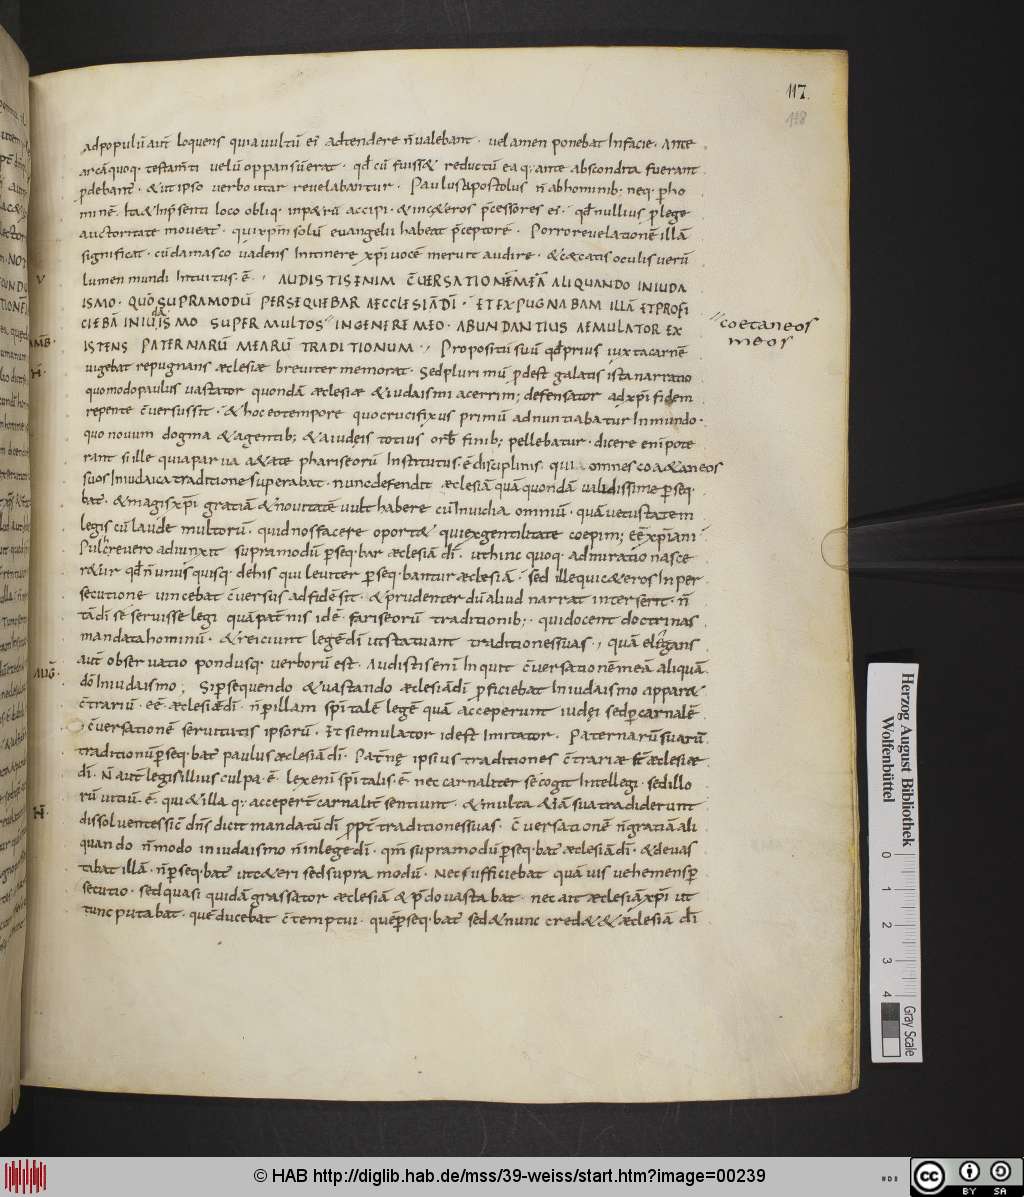 117.
118
ad populū aut̄ loquens quia uultū ei' adtendere n̄ ualebant · uelamen ponebat In facie · Ante
arcā quoq· testam̄ti uelū oppansū erat · qđ cū fuisset reductū ea q; ante abscondita fuerant
p̄debant · & ut ipso uerbo utar reuelabantur · Paulus apostolus n̄ ab hominib· neq· p̄ ho
auctoritate moueat · qui xp̄m solū euangelii habeat p̄ceptorē · Porro reuelationē illā
significat · cū damasco uadens In itinere xp̄i uocē meruit audire · & cæcatis oculis uerū
lumen mundi Intuitus · ē · AUDISTIS ENIM C̄UERSATIONĒ MEĀ ALIQUANDO IN IUDA
ISMO · QUO SUPRA MODŪ PERSEQUEBAR AECCLESIĀ DĪ · ET EXPUGNABAM ILLĀ ET PROFI
CIEBĀ IN IUDAISMO SUPER MULTOS IN GENERE MEO · ABUNDANTIUS AEMULATOR EX
coetaneos
meos
ISTENS PATERNARŪ MEARŪ TRADITIONUM · Propositū suū qđ prius iuxta carnē
AMB̄·
uigebat repugnans æclesiæ breuiter memorat · Sed plurimū p̄dest galatis ista narratio
H̄·
quomodo paulus uastator quondā æclesiæ & iudaismi acerrim; defensator ad xp̄i fidem
repente c̄uersus sit · & hoc eo tempore quo crucifixus primū adnuntiabatur In mundo ·
quo nouum dogma & a gentib; & a iudęis totius orb̄ finib; pellebatur · dicere enī pote
rant si ille qui a paruula ætate phariseorū Institutus · ē disciplinis · qui omnes coætaneos
suos Iniudaica traditione superabat · nunc defendit æclesiā quā quondā ualidissime p̄seq·
bat̄ · & magis xp̄i gratiā & nouitatē uult habere cū Inuidia omniū · quā uetustatem
legis cū laude multorū · quid nos facere oportet qui ex gentilitate coepim; ēē xp̄iani
Pulchre uero adiunxit supra modū p̄seq·bar æclesiā dī · ut hinc quoq· admiratio nasce
retur qđ n̄ unus quisq· de his qui leuiter p̄seq·bantur æclesiā · sed ille qui cæteros In per
secutione uincebat c̄uersus ad fidē sit · & prudenter dū aliud narrat inter serit · n̄
tā dī se seruisse legi quā pat̄nis idē · fariseorū traditionib; · qui docent doctrinas
mandata hominū · & reiciunt legē dī ut statuant traditiones suas · quā elegans
aut̄ obseruatio pondusq· uerborū est · Audistis enī Inquit c̄uersationē meā aliquā
AUḠ·
do In iudaismo · Si p̄sequendo & uastando æclesiā dī p̄ficiebat In iudaismo apparet
c̄trariū · eē æclesiæ dī · n̄ p̄ illam sp̄italē legē quā acceperunt iudęi sed p̄ carnalē
c̄uersationē seruitutis ipsorū · Et si emulator idest Imitator · Paternarū suarū
traditionū p̄seq·bat̄ paulus æclesiā dī · Pat̄nę ipsius traditiones c̄trariæ st̄ æclesiæ
dī · N̄ aut̄ legis illius culpa · ē · lex enī sp̄italis · ē · nec carnaliter se cogit Intellegi · sed illo
rū uitiū · ē · qui & illa q; acceper̄t carnalit̄ sentiunt · & multa etiā sua tradiderunt
H̄·
dissoluentes sic̄ dn̄s dicit mandatū dī p̄pt̄ traditiones suas · C̄uersationē n̄ gratiā ali
quando n̄ modo in iudaismo n̄ in lege dī · qm̄ supra modū p̄seq·bat̄ æclesiā dī · & deuas
tabat illā · n̄ p̄seq·bat̄ ut cæteri sed supra modū · Nec sufficiebat quā uis uehemens p̄
secutio · sed quasi quidā grassator æclesiā & p̄do uastabat · nec ait æclesiā xp̄i ut
tunc putabat · quē ducebat c̄temptui · quē p̄seq·bat̄ sed & nunc credet & æclesiā dī
Herzog August Bibliothek
Wolfenbüttel
0 1 2 3 4
Gray Scale
© HAB http://diglib.hab.de/mss/39-weiss/start.htm?image=00239
cc BY SA